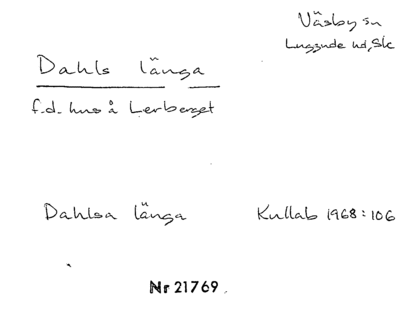 Väsby sn
Luggude hd, Sk
Dahls länga
f.d. hus å Lerberget
Dahlsa länga Kullab 1968:106
Nr 21769